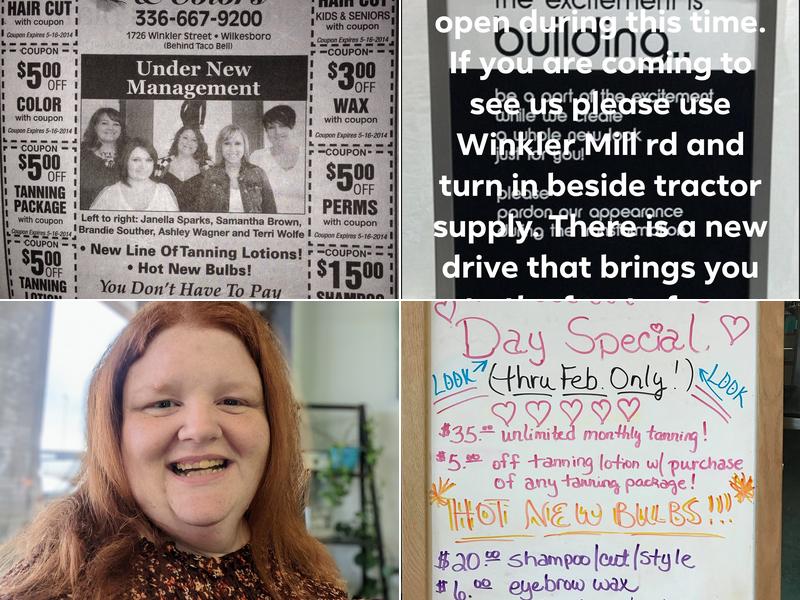 HAIR CUT
with coupon
Coupon Expires 5-16-2014
COUPON
$5.00 OFF
COLOR
with coupon
Coupon Expires 5-16-2014
COUPON
$5.00 OFF
TANNING
PACKAGE
with coupon
Coupon Expires 5-16-2014
COUPON
$5.00 OFF
TANNING
LOTION
& Colors
336-667-9200
1726 Winkler Street • Wilkesboro
(Behind Taco Bell)
Under New
Management
Left to right: Janella Sparks, Samantha Brown,
Brandie Souther, Ashley Wagner and Terri Wolfe
• New Line Of Tanning Lotions!
• Hot New Bulbs!
You Don't Have To Pay
HAIR CUT
KIDS & SENIORS
with coupon
Coupon Expires 5-16-2014
COUPON
$3.00 OFF
WAX
with coupon
Coupon Expires 5-16-2014
COUPON
$5.00 OFF
PERMS
with coupon
Coupon Expires 5-16-2014
COUPON
$15.00
SHAMPOO
the excitement is
building...
be a part of the excitement
while we create
a whole new look
just for you!
please
pardon our appearance
during the
open during this time.
If you are coming to
see us please use
Winkler Mill rd and
turn in beside tractor
supply. There is a new
drive that brings you
Day Special
LOOK (thru Feb. Only!) LOOK
$35.00 unlimited monthly tanning!
$5.00 off tanning lotion w/ purchase
of any tanning package!
HOT NEW BULBS!!!
$20.00 shampoo/cut/style
$6.00 eyebrow wax